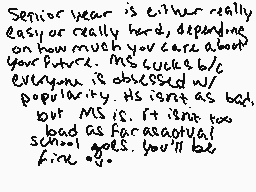 Senior year is either really
easy or really hard, depending
on how much you care about
your future. MS sucks b/c
everyone is obsessed w/
popularity. Hs isnt as bad,
but MS is. it isnt too
bad as far as actual
school goes. you'll be
fine